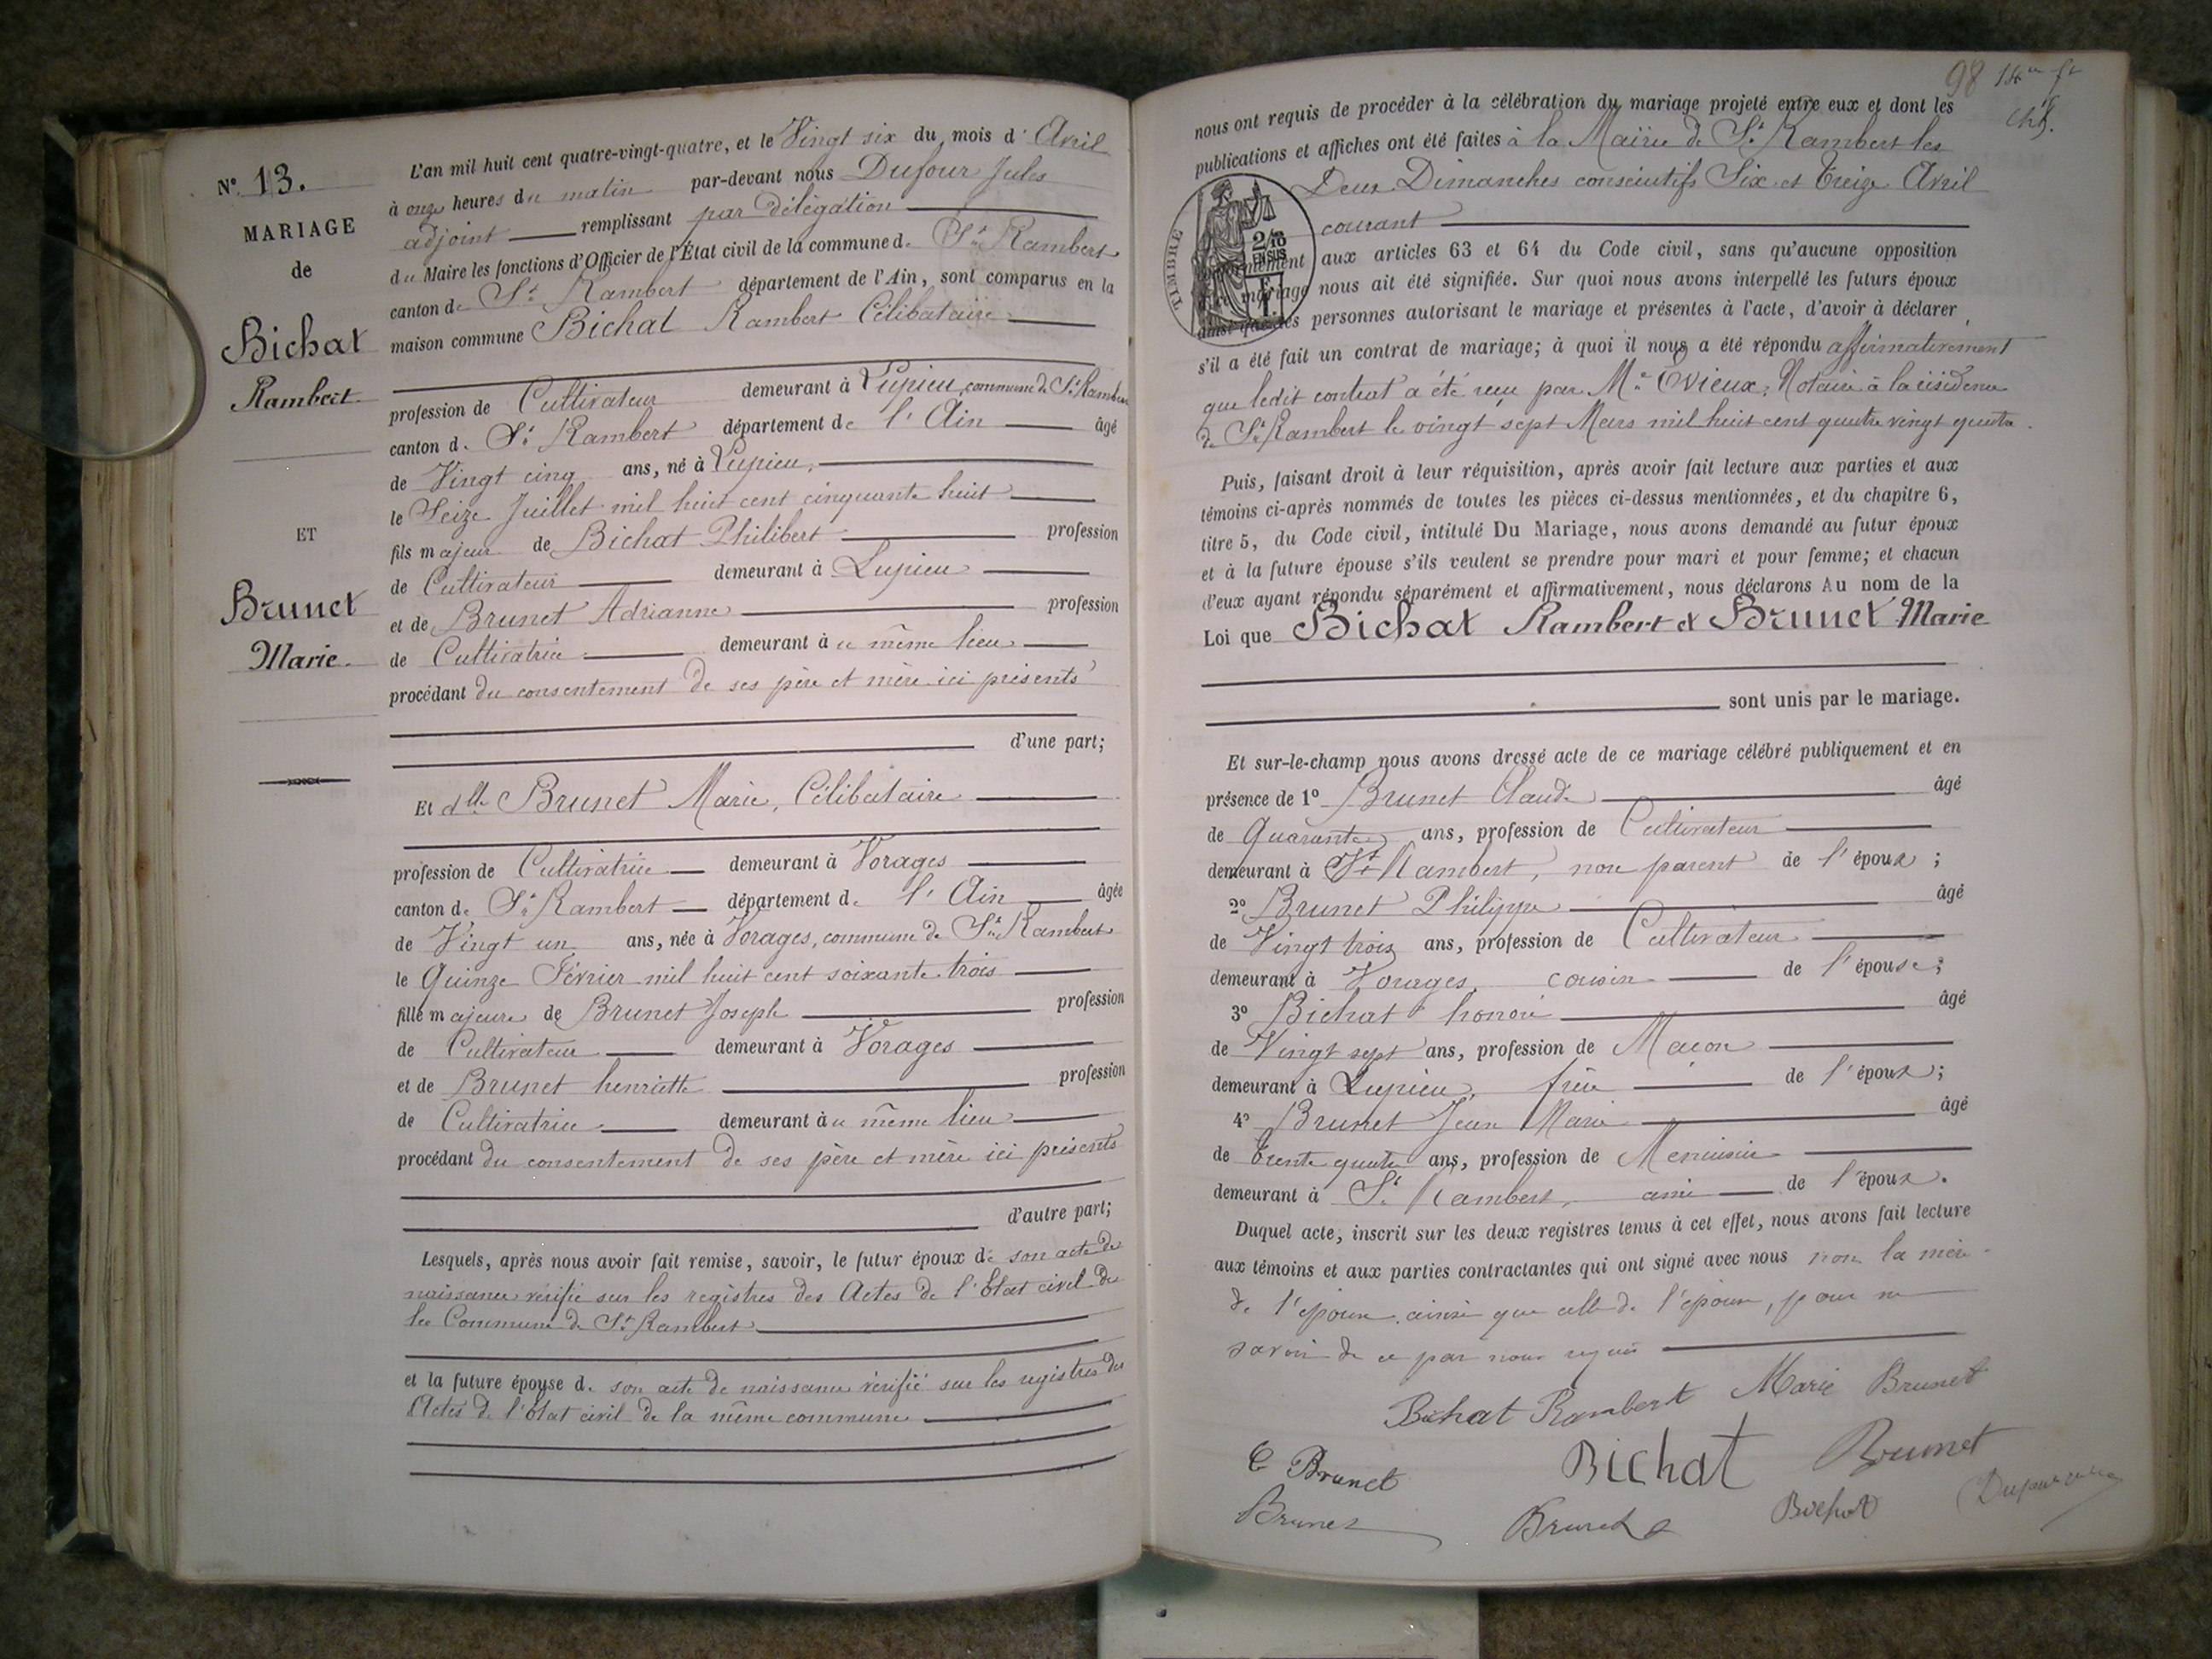 N° 13.
MARIAGE
de
Bichat
Rambert
ET
Brunet
Marie
L'an mil huit cent quatre-vingt-quatre, et le Vingt six du mois d'Avril
à onze heures du matin par-devant nous Dufour Jules
adjoint remplissant par délégation
du Maire les fonctions d'Officier de l'État civil de la commune de St Rambert
canton de St Rambert département de l'Ain, sont comparus en la
maison commune Bichat Rambert Célibataire
profession de Cultivateur demeurant à Lupieu, commune de St Rambert
canton de St Rambert département de l'Ain âgé
de Vingt cinq ans, né à Lupieu,
le Seize Juillet mil huit cent cinquante huit
fils majeur de Bichat Philibert profession
de Cultivateur demeurant à Lupieu
et de Brunet Adrianne profession
de Cultivatrice demeurant au même lieu
procédant du consentement de ses père et mère ici présents
d'une part;
Et dlle Brunet Marie, Célibataire
profession de Cultivatrice demeurant à Vorages
canton de St Rambert département de l'Ain âgée
de Vingt un ans, née à Vorages, commune de St Rambert
le Quinze Février mil huit cent soixante trois
fille majeure de Brunet Joseph profession
de Cultivateur demeurant à Vorages
et de Brunet henriette profession
de Cultivatrice demeurant au même lieu
procédant du consentement de ses père et mère ici présents
d'autre part;
Lesquels, après nous avoir fait remise, savoir, le futur époux de son acte de
naissance vérifié sur les registres des Actes de l'État civil de
la Commune de St Rambert
et la future épouse de son acte de naissance vérifié sur les registres des
Actes de l'État civil de la même commune
98
nous ont requis de procéder à la célébration du mariage projeté entre eux et dont les
publications et affiches ont été faites à la Mairie de St Rambert les
Deux Dimanches consécutifs Six et Treize Avril
courant
TIMBRE
2/10
EN SUS
conformément aux articles 63 et 64 du Code civil, sans qu'aucune opposition
mariage nous ait été signifiée. Sur quoi nous avons interpellé les futurs époux
ainsi que les personnes autorisant le mariage et présentes à l'acte, d'avoir à déclarer
s'il a été fait un contrat de mariage; à quoi il nous a été répondu affirmativement
que ledit contrat a été reçu par Me Ovieux, Notaire à la résidence
de St Rambert le vingt sept Mars mil huit cent quatre vingt quatre.
Puis, faisant droit à leur réquisition, après avoir fait lecture aux parties et aux
témoins ci-après nommés de toutes les pièces ci-dessus mentionnées, et du chapitre 6,
titre 5, du Code civil, intitulé Du Mariage, nous avons demandé au futur époux
et à la future épouse s'ils veulent se prendre pour mari et pour femme; et chacun
d'eux ayant répondu séparément et affirmativement, nous déclarons Au nom de la
Loi que Bichat Rambert et Brunet Marie
sont unis par le mariage.
Et sur-le-champ nous avons dressé acte de ce mariage célébré publiquement et en
présence de 1° Brunet Claude âgé
de Quarante ans, profession de Cultivateur
demeurant à St Rambert, non parent de l'époux;
2° Brunet Philippe âgé
de Vingt trois ans, profession de Cultivateur
demeurant à Vorages, cousin de l'épouse;
3° Bichat honoré âgé
de Vingt sept ans, profession de Maçon
demeurant à Lupieu, frère de l'époux;
4° Brunet Jean Marie âgé
de Trente quatre ans, profession de Menuisier
demeurant à St Rambert, ami de l'époux.
Duquel acte, inscrit sur les deux registres tenus à cet effet, nous avons fait lecture
aux témoins et aux parties contractantes qui ont signé avec nous non la mère
de l'époux ainsi que celle de l'épouse, pour ne
savoir de ce par nous requis
Bichat Rambert Marie Brunet
C Brunet Bichat Brunet
Brunet Brunet Bichat